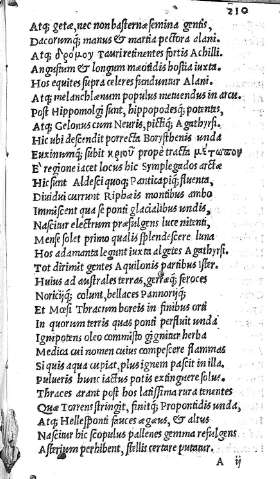 210
Atq; getæ, nec non bastarnæ semina gentis,
Dacorumq; manus & martia pectora alani.
Atq; δρομου Tauri retinentes fortis Achilli.
Angustum & longum mæotidis hostia iuxta.
Hos equites supra celeres funduntur Alani.
Atq; melanchlænum populus metuendus in arcu.
Post Hippomolgi sunt, hippopodesq; potentes,
Atq; Gelonus cum Neuris, pictiq; Agathyrsi.
Hic ubi descendit porrecta Borysthenis unda
Euxinumq; subit κριου prope tracta μέτωπον
E regione iacet locus hic Symplegados arctæ
Hic sunt Aldesci quoq; Panticapiq; fluenta,
Diuidui currunt Riphæis montibus ambo
Immiscent qua se ponti glacialibus undis,
Nascitur electrum præfulgens luce nitenti,
Mense solet primo qualis splendescere luna
Hos adamanta legunt iuxta algetes Agathyrsi.
Tot dirimit gentes Aquilonis partibus Ister.
Huius ad australes terras, feroces
Noricijq; colunt, bellaces Pannonijq;
Et Mœsi Thracum boreis in finibus orti
In quorum terris quas ponti perfluit unda
Ignipotens oleo commisto gignitur herba
Medica cui nomen cuius compescere flammas
Si quis aqua cupiat, plus ignem pascit in illa.
Pulueris hunc iactus potis extinguere solus.
Thraces arant post hos latissima rura tenentes
Quæ Torrens stringit, finitq; Propontidis unda,
Atq; Hellesponti fauces ægæus, & altus
Nascitur hic scopulus pallenes gemma refulgens
Asterium perhibent, stellis certare putatur.
A ij